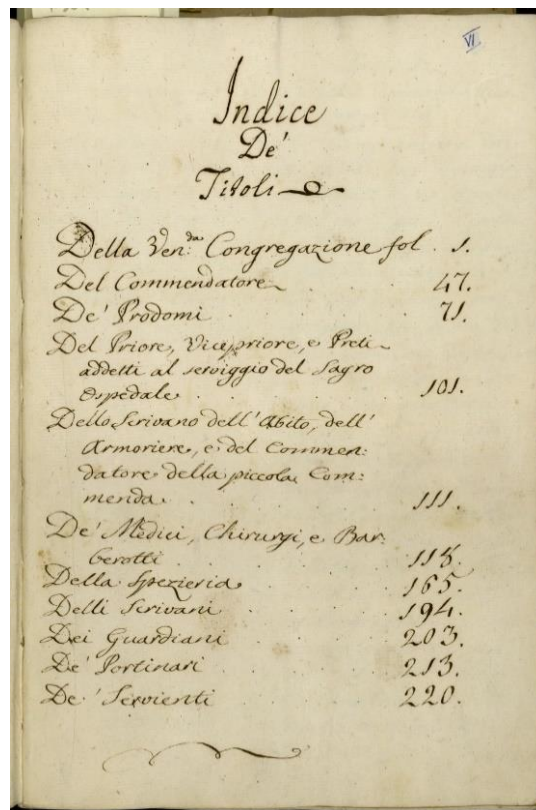 VI
Indice
De'
Titoli
Della Ven:da Congregazione fol. 1.
Del Commendatore 47.
De' Prodomi 71.
Del Priore, Vicepriore, e Preti
addetti al serviggio del Sagro
Ospedale 101.
Dello Scrivano dell' Abito, dell'
Armoriere, e del Commen:
datore della piccola Com:
menda 111.
De' Medici, Chirurgi, e Bar:
berotti 118.
Della Spezieria 165.
Delli Scrivani 194.
Dei Guardiani 203.
De' Portinari 213.
De' Servienti 220.